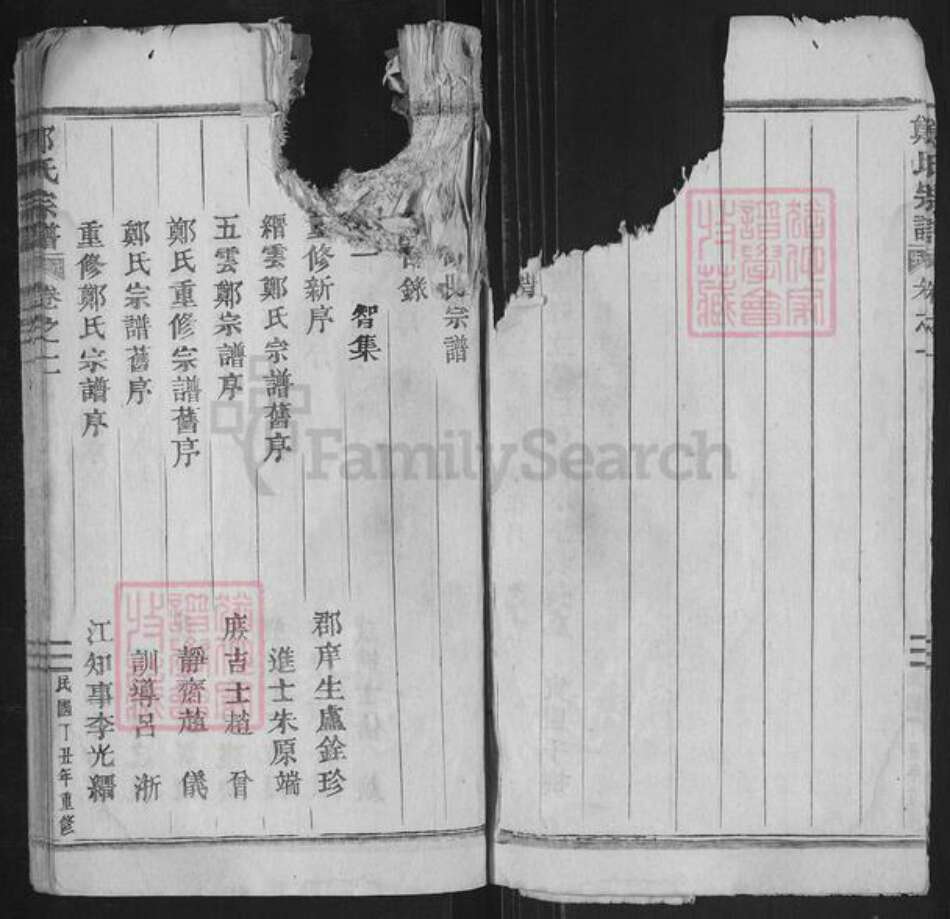 鄭氏宗譜
卷之一
氏宗譜
錄
一 智集
重修新序 郡庠生盧銓珍
縉雲鄭氏宗譜舊序 進士朱原端
五雲鄭宗譜序 庶吉士趙
鄭氏重修宗譜舊序 靜齋趙 儀
鄭氏宗譜舊序 訓導呂 浙
重修鄭氏宗譜序 江知事李光縉
鄭氏宗譜 卷之一 民國丁丑年重修
FamilySearch